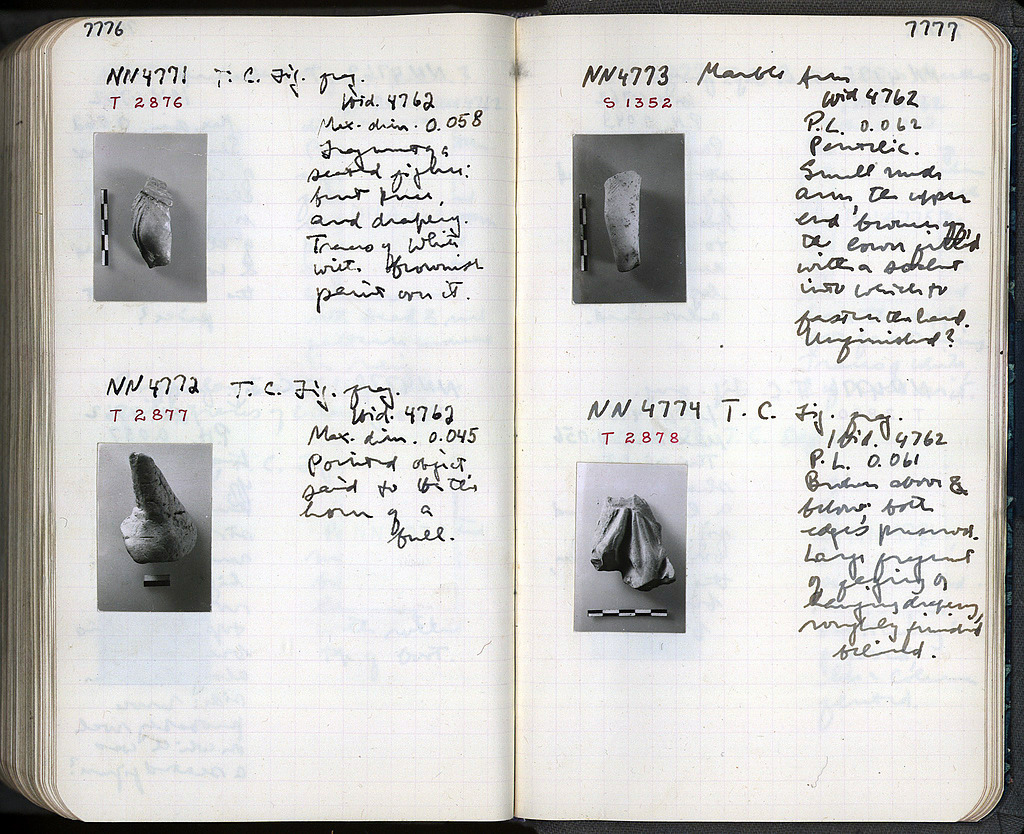 7776
NN4771 T. C. Fig. frag.
T 2876
Ibid. 4762
Max. dim. 0.058
Fragment of a
seated figure:
bent knee,
and drapery.
Traces of white
with brownish
paint on it.
NN4772 T. C. Fig. frag.
T 2877
Ibid. 4762
Max. dim. 0.045
Pointed object,
said to be the
horn of a
bull.
7777
NN4773 Marble Arm
S 1352
Ibid 4762
P.L. 0.062
Pentelic.
Small nude
arm, the upper
end broken,
the lower fitted
with a socket
into which to
fasten the hand.
Unfinished?
NN4774 T. C. Fig. frag.
T 2878
Ibid. 4762
P.L. 0.061
Broken above &
below; both
edges preserved.
Large fragment
of
hanging drapery,
roughly finished
behind.